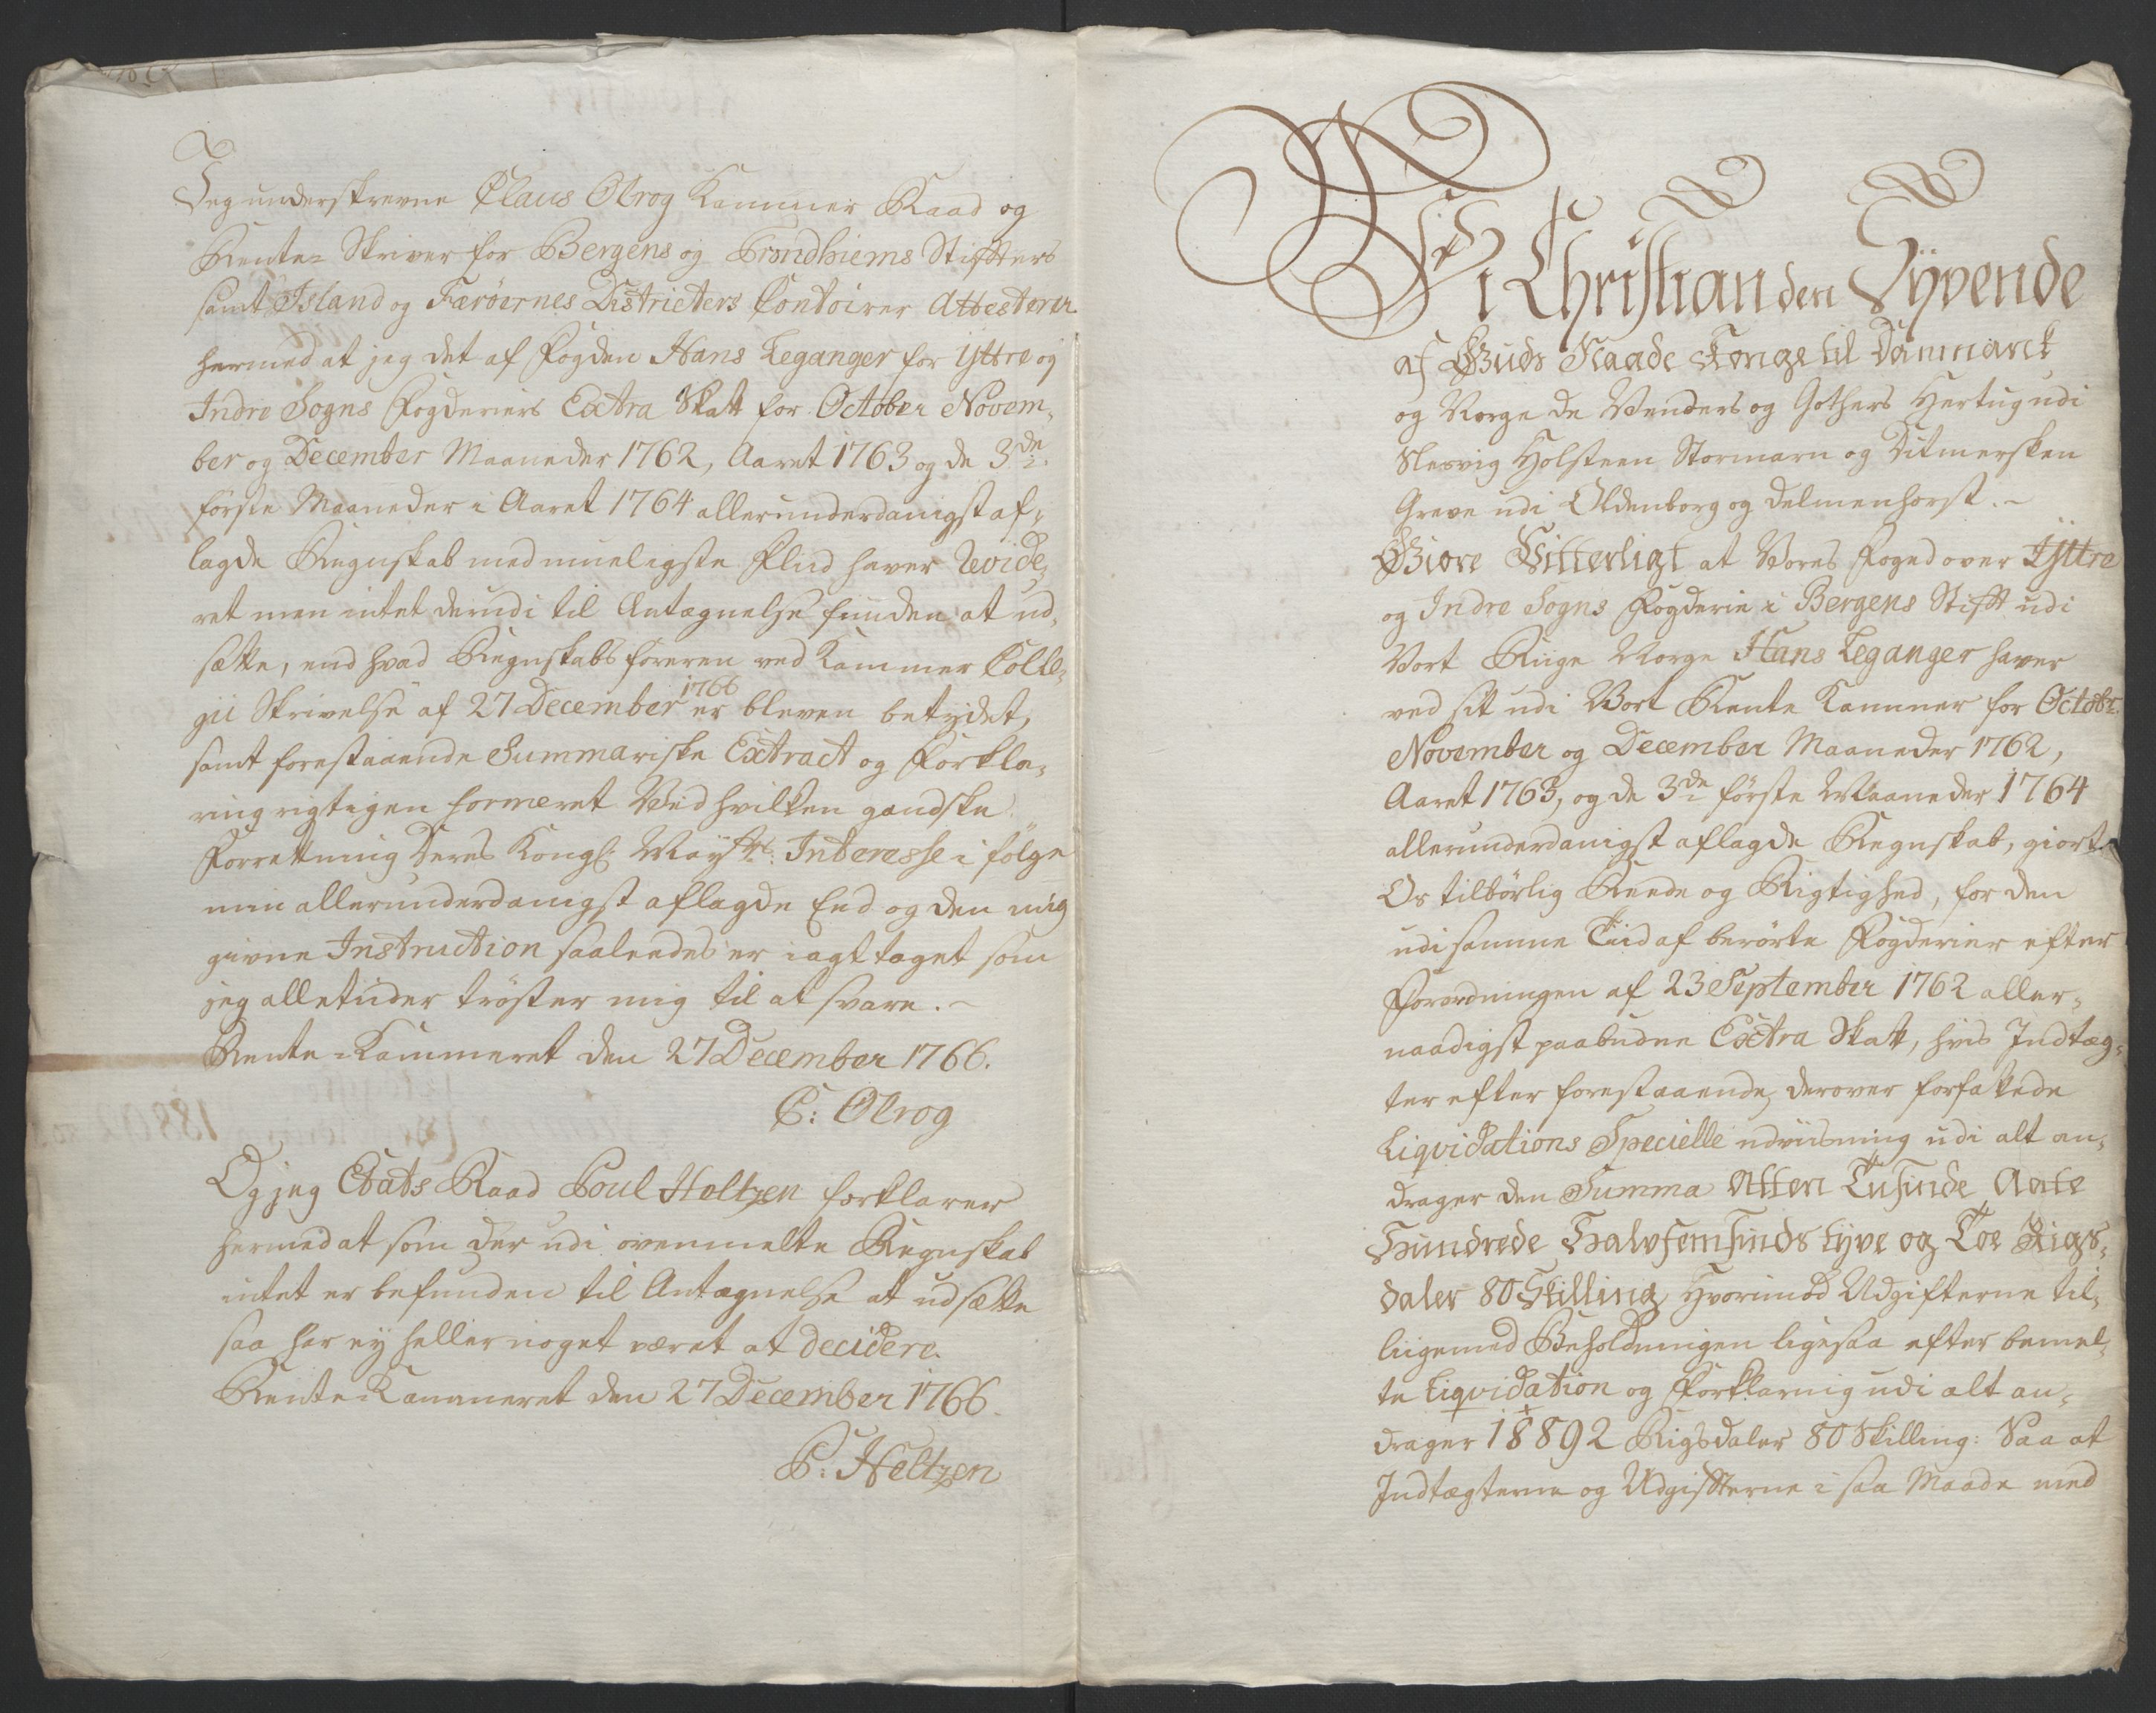 Jeg underskrevne Claus Olrog Kammer Raad og
Rente- Skriver for Bergens og Trondhiems Stiffters
samt Island og Færöernes Districters Contoirer Attesterer
hermed at jeg det af Fogden Hans Leganger for ÿttre og
Indre Sogns Fogderiers Extra Skatt for October Novem-
ber og December Maaneder 1762, Aaret 1763 og de 3de
förste Maaneder i Aaret 1764 allerunderdanigst af-
lagde Regnskab med mueligste Fliid haver Revide-
ret men intet derudi til Antægnelse funden at ud-
sætte, end hvad Regnskabsföreren ved Kammer Colle-
gii Skrivelse af 27 December 1766 er bleven betydet,
samt forestaaende Summariske Extract og Forkla-
ring rigtigen formeret Ved hvilken gandske
Forrettning Deres Kongl Maÿsts: Interesse i fölge
min allerunderdanigst aflagde Eed og den mig
givne Instruction saaleedes er iagttaget som
jeg alletider tröster mig til at svare.
Rente-Kammeret den 27 December 1766.
C: Olrog
Og jeg Etats Raad Poul Heltzen forklarer
hermed at som der udi ovenmelte Regnskab
intet er befunden til Antægnelse at udsætte
saa har ey heller noget været at decidere.
Rente-Kammeret den 27 December 1766.
P: Heltzen
Vi Christian den Syvende
af Guds Naade Konge til Danmarck
og Norge de Venders og Gothers Hertug udi
Slesvig Holsteen Stormarn og Ditmersken
Greve udi Oldenborg og Delmenhorst.
Giöre Vitterligt at Vores Foged over Ÿttre
og Indre Sogns Fogderie i Bergens Stifft udi
Vort Riige Norge Hans Leganger haver
ved sit udi Vort Rente Kammer for Octobr.
November og December Maaneder 1762,
Aaret 1763, og de 3de förste Maaneder 1764
allerunderdanigst aflagde Regnskab, giort
Os tilbörlig Reede og Rigtighed, for den
udi samme Tiid af berörte Fogderier efter
Forordningen af 23 September 1762 aller-
naadigst paabudne Extra Skatt, hvis Indtæg-
ter efter forestaaende, derover forfattede
Liqvidations Specielle udviisning udi alt an-
drager den Summa Atten Tusinde Aate
Hundrede Halvfemsindstyve og Toe Rigs-
daler 80 Skilling, Hvorimod Udgifterne til-
liigemed Beholdningen ligesaa efter bemel-
te Liqvidation og Forklaring udi alt an-
drager 18892 Rigsdaler 80 Skilling: Saa at
Indtægterne og Udgiffterne i saa Maade med